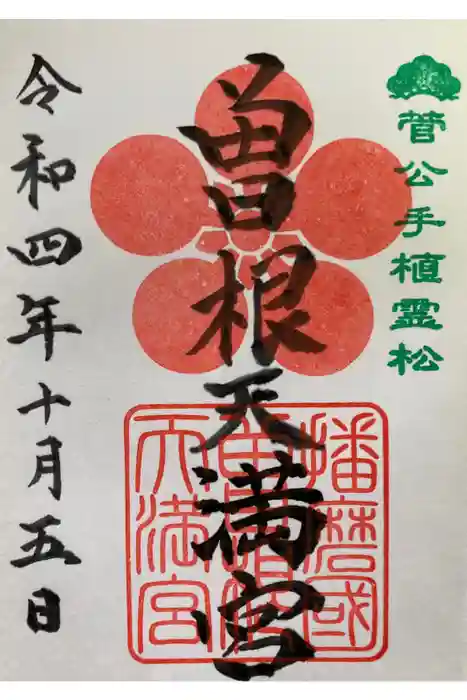 菅公手植霊松
曽根天満宮
播磨國
曽根
天満宮
令和四年十月五日